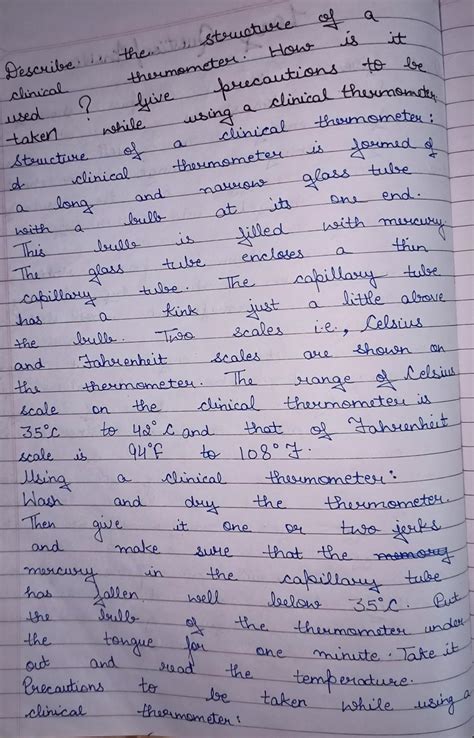 Describe the structure of a
clinical thermometer. How is it
used ? Give precautions to be
taken while using a clinical thermometer
Structure of a clinical thermometer:
A clinical thermometer is formed of
a long and narrow glass tube
with a bulb at its one end.
This bulb is filled with mercury.
The glass tube encloses a thin
capillary tube. The capillary tube
has a kink just a little above
the bulb. Two scales i.e., Celsius
and Fahrenheit scales are shown on
the thermometer. The range of Celsius
scale on the clinical thermometer is
35°C to 42°C and that of Fahrenheit
scale is 94°F to 108°F.
Using a clinical thermometer:
Wash and dry the thermometer.
Then give it one or two jerks
and make sure that the memory
mercury in the capillary tube
has fallen well below 35°C. Put
the bulb of the thermometer under
the tongue for one minute. Take it
out and read the temperature.
Precautions to be taken while using a
clinical thermometer: